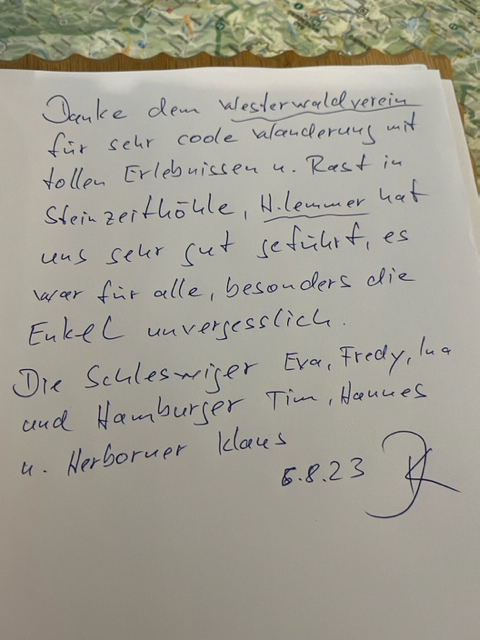 Danke dem Westerwaldverein
für sehr coole Wanderung mit
tollen Erlebnissen u. Rast in
Steinzeithöhle, H. Lemmer hat
uns sehr gut geführt, es
war für alle, besonders die
Enkel unvergesslich.
Die Schleswiger Eva, Fredy, Ina
und Hamburger Tim, Hannes
u. Herborner Klaus
6.8.23